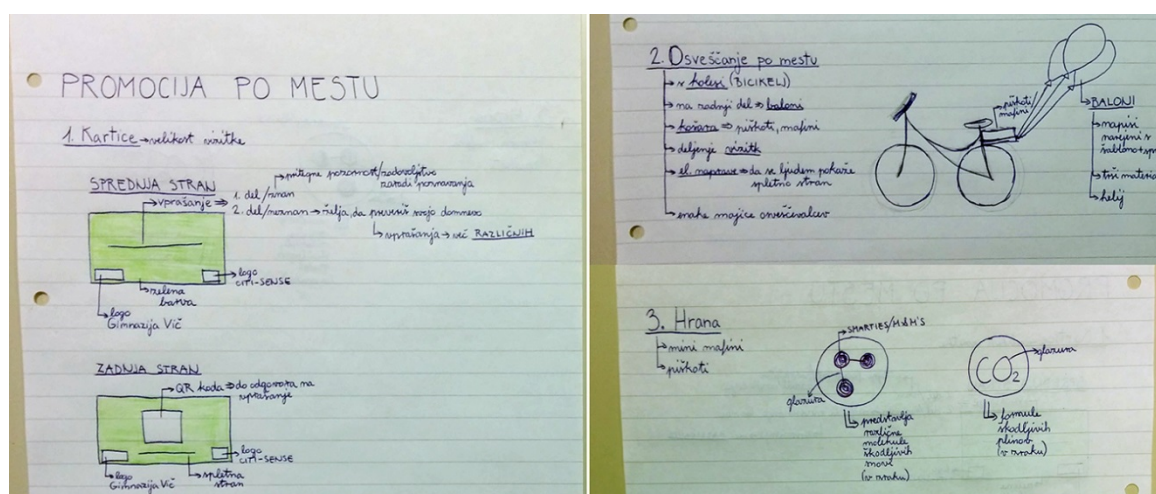 PROMOCIJA PO MESTU
1. Kartice → velikost vizitke
SPREDNJA STRAN
→ vprašanje ⇒
1. del/znan → pritegne pozornost/radovoljstvo
zaradi poznavanja
2. del/neznan → želja, da preveriš svojo domnevo
→ vprašanja → več RAZLIČNIH
→ logo
CITI-SENSE
→ zelena
barva
→ logo
Gimnazija Vič
ZADNJA STRAN
→ QR koda ⇒ do odgovora na
vprašanje
→ logo
CITI-SENSE
→ logo
Gimnazija Vič
→ spletna
stran
2. Osveščanje po mestu
→ s kolesi (BICIKEL)
→ na zadnji del ⇒ baloni
→ košara ⇒ piškoti, mafini
→ deljenje vizitk
→ el. naprave ⇒ da se ljudem pokaže
spletno stran
→ enake majice osveščevalcev
piškoti/
mafini
→ BALONI
→ napisi
narejeni s
šablono+
→ trši
→ helij
3. Hrana
→ mini mafini
→ piškoti
→ SMARTIES/M&M'S
glazura
→ predstavlja
različne
molekule
škodljivih
snovi
(v zraku)
CO2
→ glazura
→ formule
škodljivih
plinov
(v zraku)